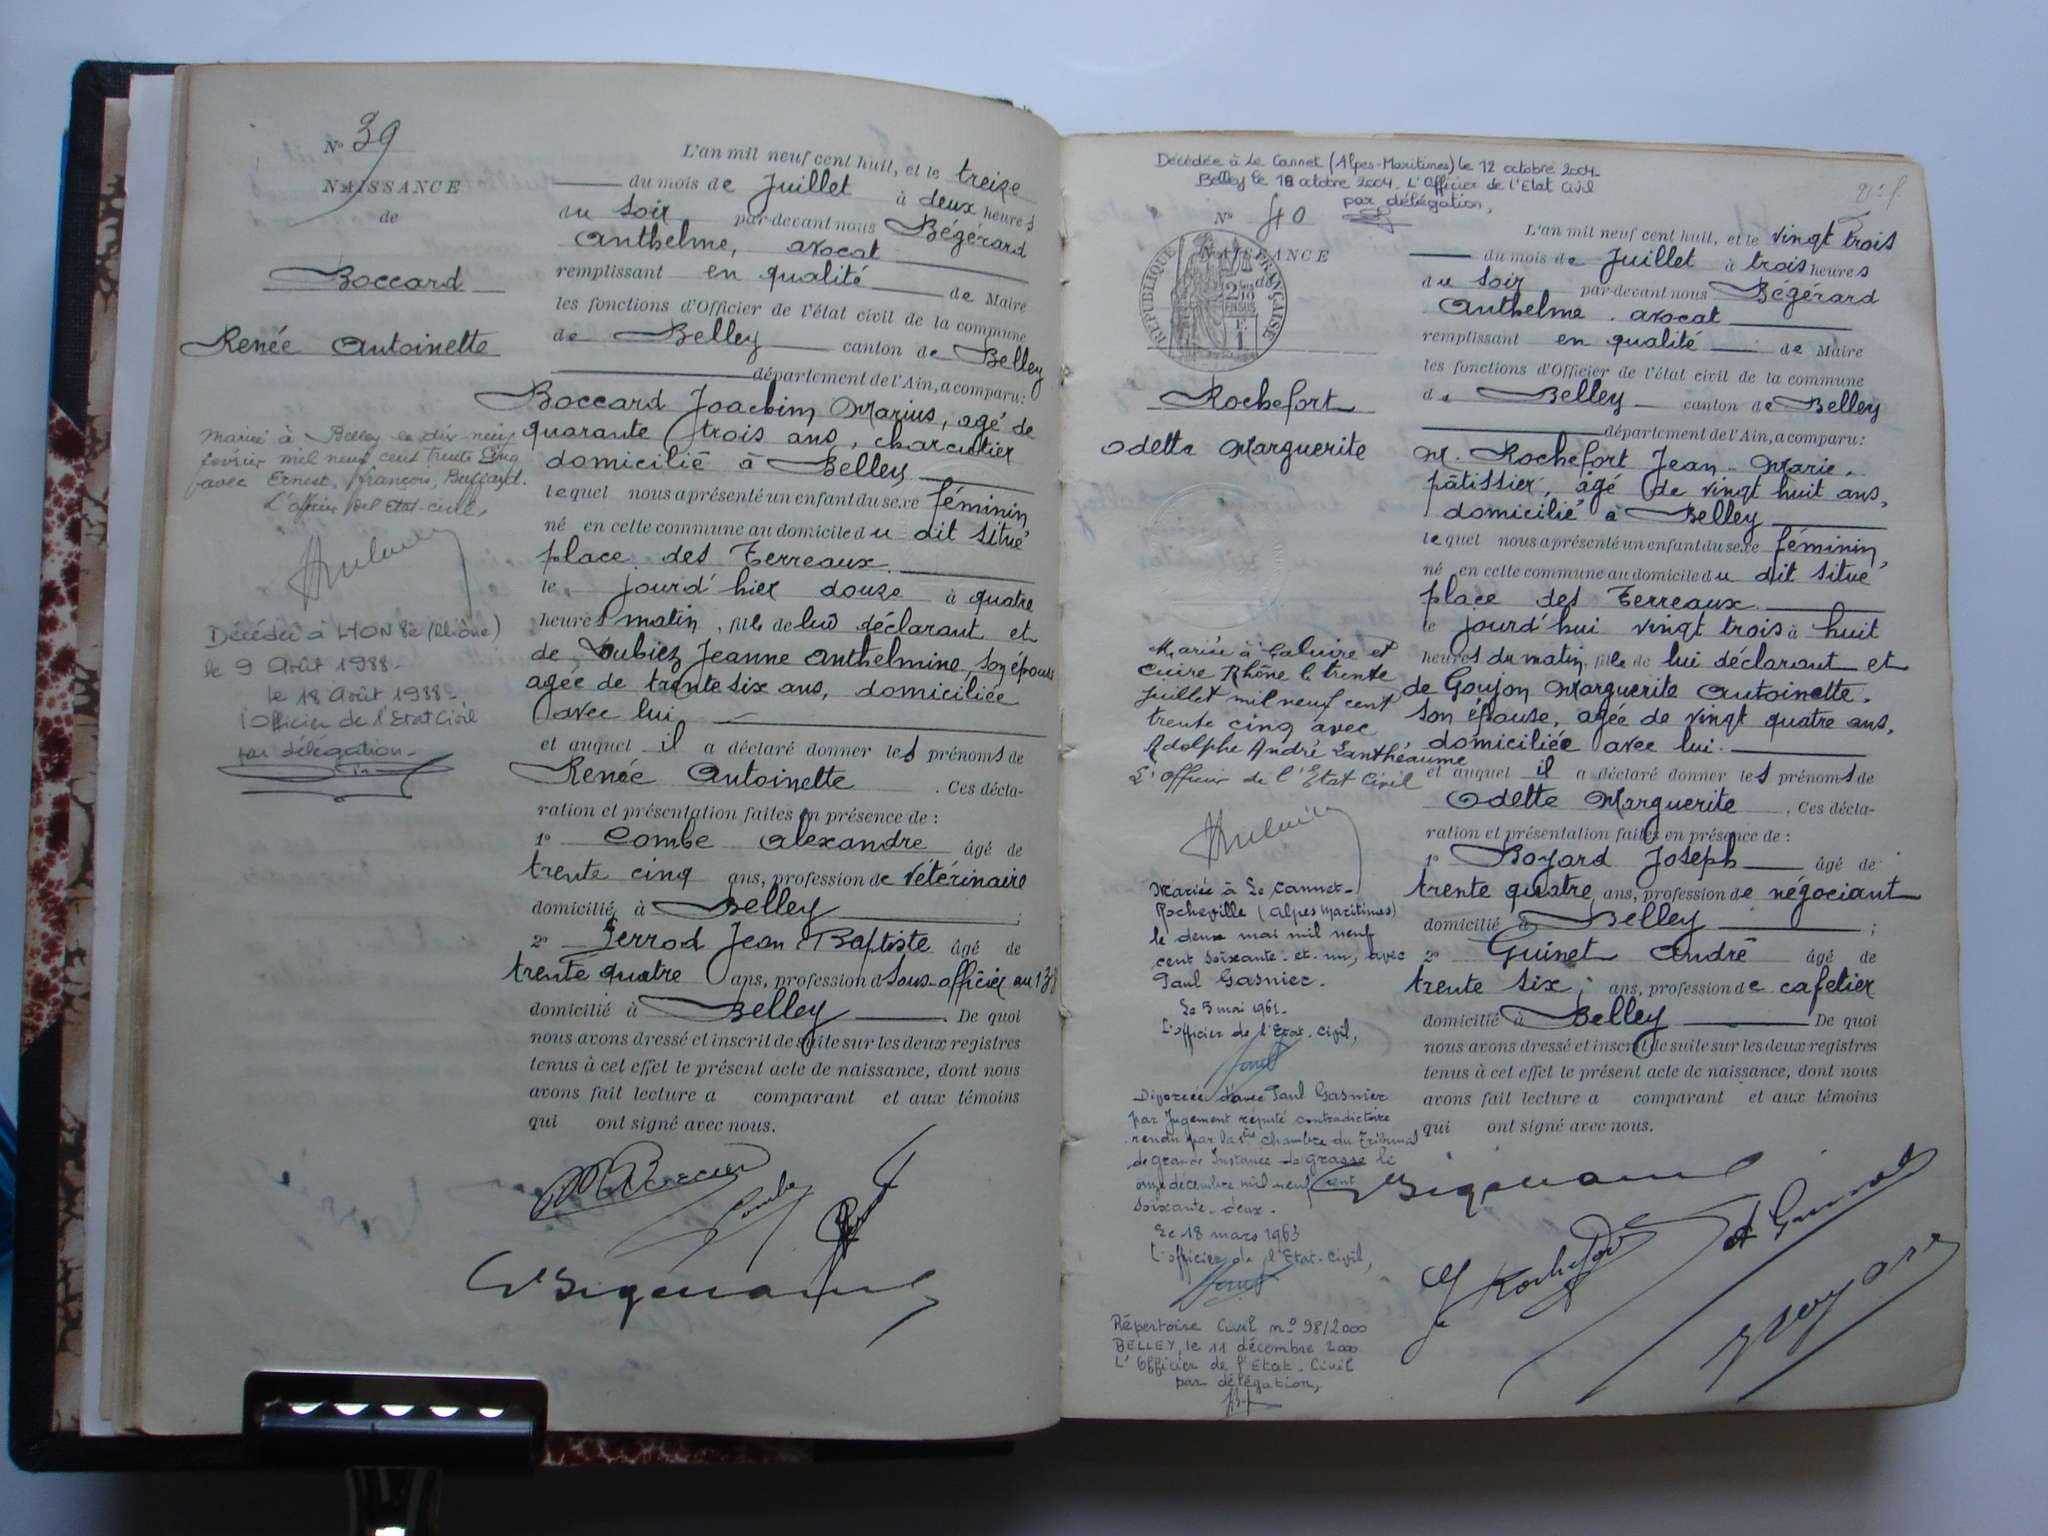 N° 39
NAISSANCE
de
Boccard
Renée Antoinette
Mariée à Belley le dix neuf
février mil neuf cent trente cinq
avec Ernest, françois, Buffard.
L'officier de l'Etat-civil,
Décédée à LYON 8e (Rhône)
le 9 Août 1988-
le 18 Août 1988-
l'Officier de l'Etat Civil
par délégation-
L'an mil neuf cent huit, et le treize
du mois de Juillet à deux heures
du soir par-devant nous Bégérard
Anthelme, avocat
remplissant en qualité de Maire
les fonctions d'Officier de l'état civil de la commune
de Belley canton de Belley
département de l'Ain, a comparu:
Boccard Joachim Marius, agé de
quarante trois ans, charcutier
domicilié à Belley
lequel nous a présenté un enfant du sexe féminin,
né en cette commune au domicile du dit situé
place des Terreaux.
le jourd'hier douze à quatre
heures matin, fille de lui déclarant et
de Dubiez Jeanne Anthelmine, son épouse
agée de trente six ans, domiciliée
avec lui
et auquel il a déclaré donner les prénoms de
Renée Antoinette . Ces décla-
ration et présentation faites en présence de :
1° Combe Alexandre âgé de
trente cinq ans, profession de vétérinaire
domicilié à Belley ;
2° Perrod Jean Baptiste âgé de
trente quatre ans, profession d sous-officier au 133
domicilié à Belley . De quoi
nous avons dressé et inscrit de suite sur les deux registres
tenus à cet effet le présent acte de naissance, dont nous
avons fait lecture a comparant et aux témoins
qui ont signé avec nous.
Combe
Décédée à Le Cannet (Alpes-Maritimes) le 12 octobre 2004-
Belley le 18 octobre 2004. L'Officier de l'Etat Civil
par délégation,
N° 40
NAISSANCE
de
RÉPUBLIQUE FRANÇAISE
Rochefort
Odette Marguerite
Mariée à Caluire et
Cuire Rhône le trente
juillet mil neuf cent
trente cinq avec
Adolphe André Lanthéaume
L'Officier de l'Etat Civil
Mariée à Le Cannet-
Rocheville (Alpes Maritimes)
le deux mai mil neuf
cent soixante-et-un, avec
Paul Gasnier.
Le 5 mai 1961-
L'officier de l'Etat-Civil,
Divorcée d'avec Paul Gasnier
par Jugement réputé contradictoire
rendu par la 1ère chambre du Tribunal
de grande Instance de Grasse le
onze décembre mil neuf cent
soixante-deux.
Le 18 mars 1963
L'officier de l'Etat-Civil,
Répertoire Civil n° 98/2000
BELLEY, le 11 décembre 2000
L'Officier de l'Etat-Civil
par délégation,
L'an mil neuf cent huit, et le vingt trois
du mois de Juillet à trois heures
du soir par-devant nous Bégérard
Anthelme, avocat
remplissant en qualité de Maire
les fonctions d'Officier de l'état civil de la commune
de Belley canton de Belley
département de l'Ain, a comparu:
M. Rochefort Jean-Marie-
pâtissier, âgé de vingt huit ans,
domicilié à Belley
lequel nous a présenté un enfant du sexe féminin,
né en cette commune au domicile du dit situé
place des Terreaux
le jourd'hui vingt trois à huit
heures du matin, fille de lui déclarant et
de Goujon Marguerite Antoinette.
son épouse, agée de vingt quatre ans,
domiciliée avec lui.
et auquel il a déclaré donner les prénoms de
Odette Marguerite . Ces décla-
ration et présentation faites en présence de :
1° Boyard Joseph âgé de
trente quatre ans, profession de négociant
domicilié à Belley ;
2° Guinet André âgé de
trente six, ans, profession de cafetier
domicilié à Belley De quoi
nous avons dressé et inscrit de suite sur les deux registres
tenus à cet effet le présent acte de naissance, dont nous
avons fait lecture a comparant et aux témoins
qui ont signé avec nous.
J Rochefort
A Guinet